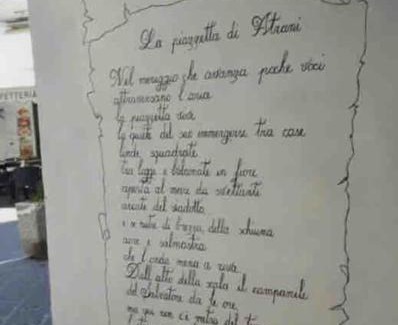 FETTERIA
La piazzetta di Atrani
Nel meriggio che avanza poche voci
attraversano l'aria
la piazzetta vive
la quiete del suo immergersi tra case
linde, squadrate
tra logge e balconate in fiore
aperta al mare da svettanti
arcate del viadotto
e si nutre di brezza, della schiuma
acre e salmastra
che l'onda mena a riva.
Dall'alto della scala il campanile
del Salvatore da le ore,
ma qui non c'è metro del